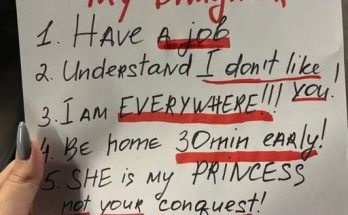 My
1. HAVE a job
2. Understand I don't like
you.
3. I AM EVERYWHERE!!!
4. Be home 30min early!
5. SHE is my PRINCESS
not your conquest!